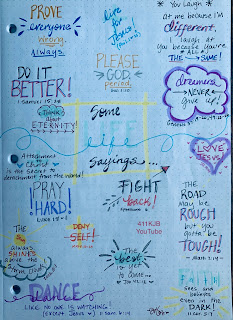 PROVE
everyone
Wrong.
Always.
live
for
Jesus
* You Laugh *
at me because I'm
different,
I laugh at
You because you're
* ALL *
THE ~ SAME!
PLEASE
GOD.
period.
DO IT
BETTER!
1 Samuel 15:22
dreamers
NEVER
give up!
THINK
about
ETERNITY!
Some
life
Sayings...
Attachment
to
Christ
is the secret to
detachment from the world!
I
LOVE
Jesus!
PRAY
HARD!
Luke 18:1
FIGHT
back!
Ephesians 6
THE
ROAD
may be
ROUGH
but you
gotta' be
TOUGH!
411KJB
YouTube
DENY
SELF!
The
Sun
always
SHINES
above the
The
best
is yet
to come...
FAITH
sees and
believes
even in the
DARK!
DANCE
LIKE NO ONE IS WATCHING
(except Jesus